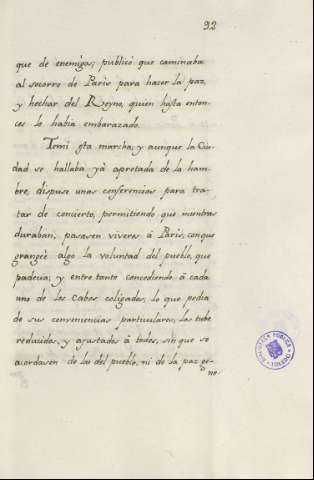 92
que de enemigos; publicó que caminaba
al socorro de Paris para hacer la paz,
y hechar del Reyno, quien hasta enton-
ces lo había embarazado.
Temí esta marcha, y aunque la Ciu-
dad se hallaba yá apretada de la ham-
bre, dispuse unas conferencias para tra-
tar de concierto, permitiendo que mientras
duraban, pasasen viveres á Paris, conque
grangeé algo la voluntad del pueblo, que
padecia; y entre tanto concediendo á cada
uno de los Cabos coligados, lo que pedia
de sus conveniencias particulares, los tube
reducidos, y ajustados á todos, sin que se
acordasen de las del pueblo, ni de la paz ge-
ne-
BIBLIOTECA PUBLICA
TOLEDO